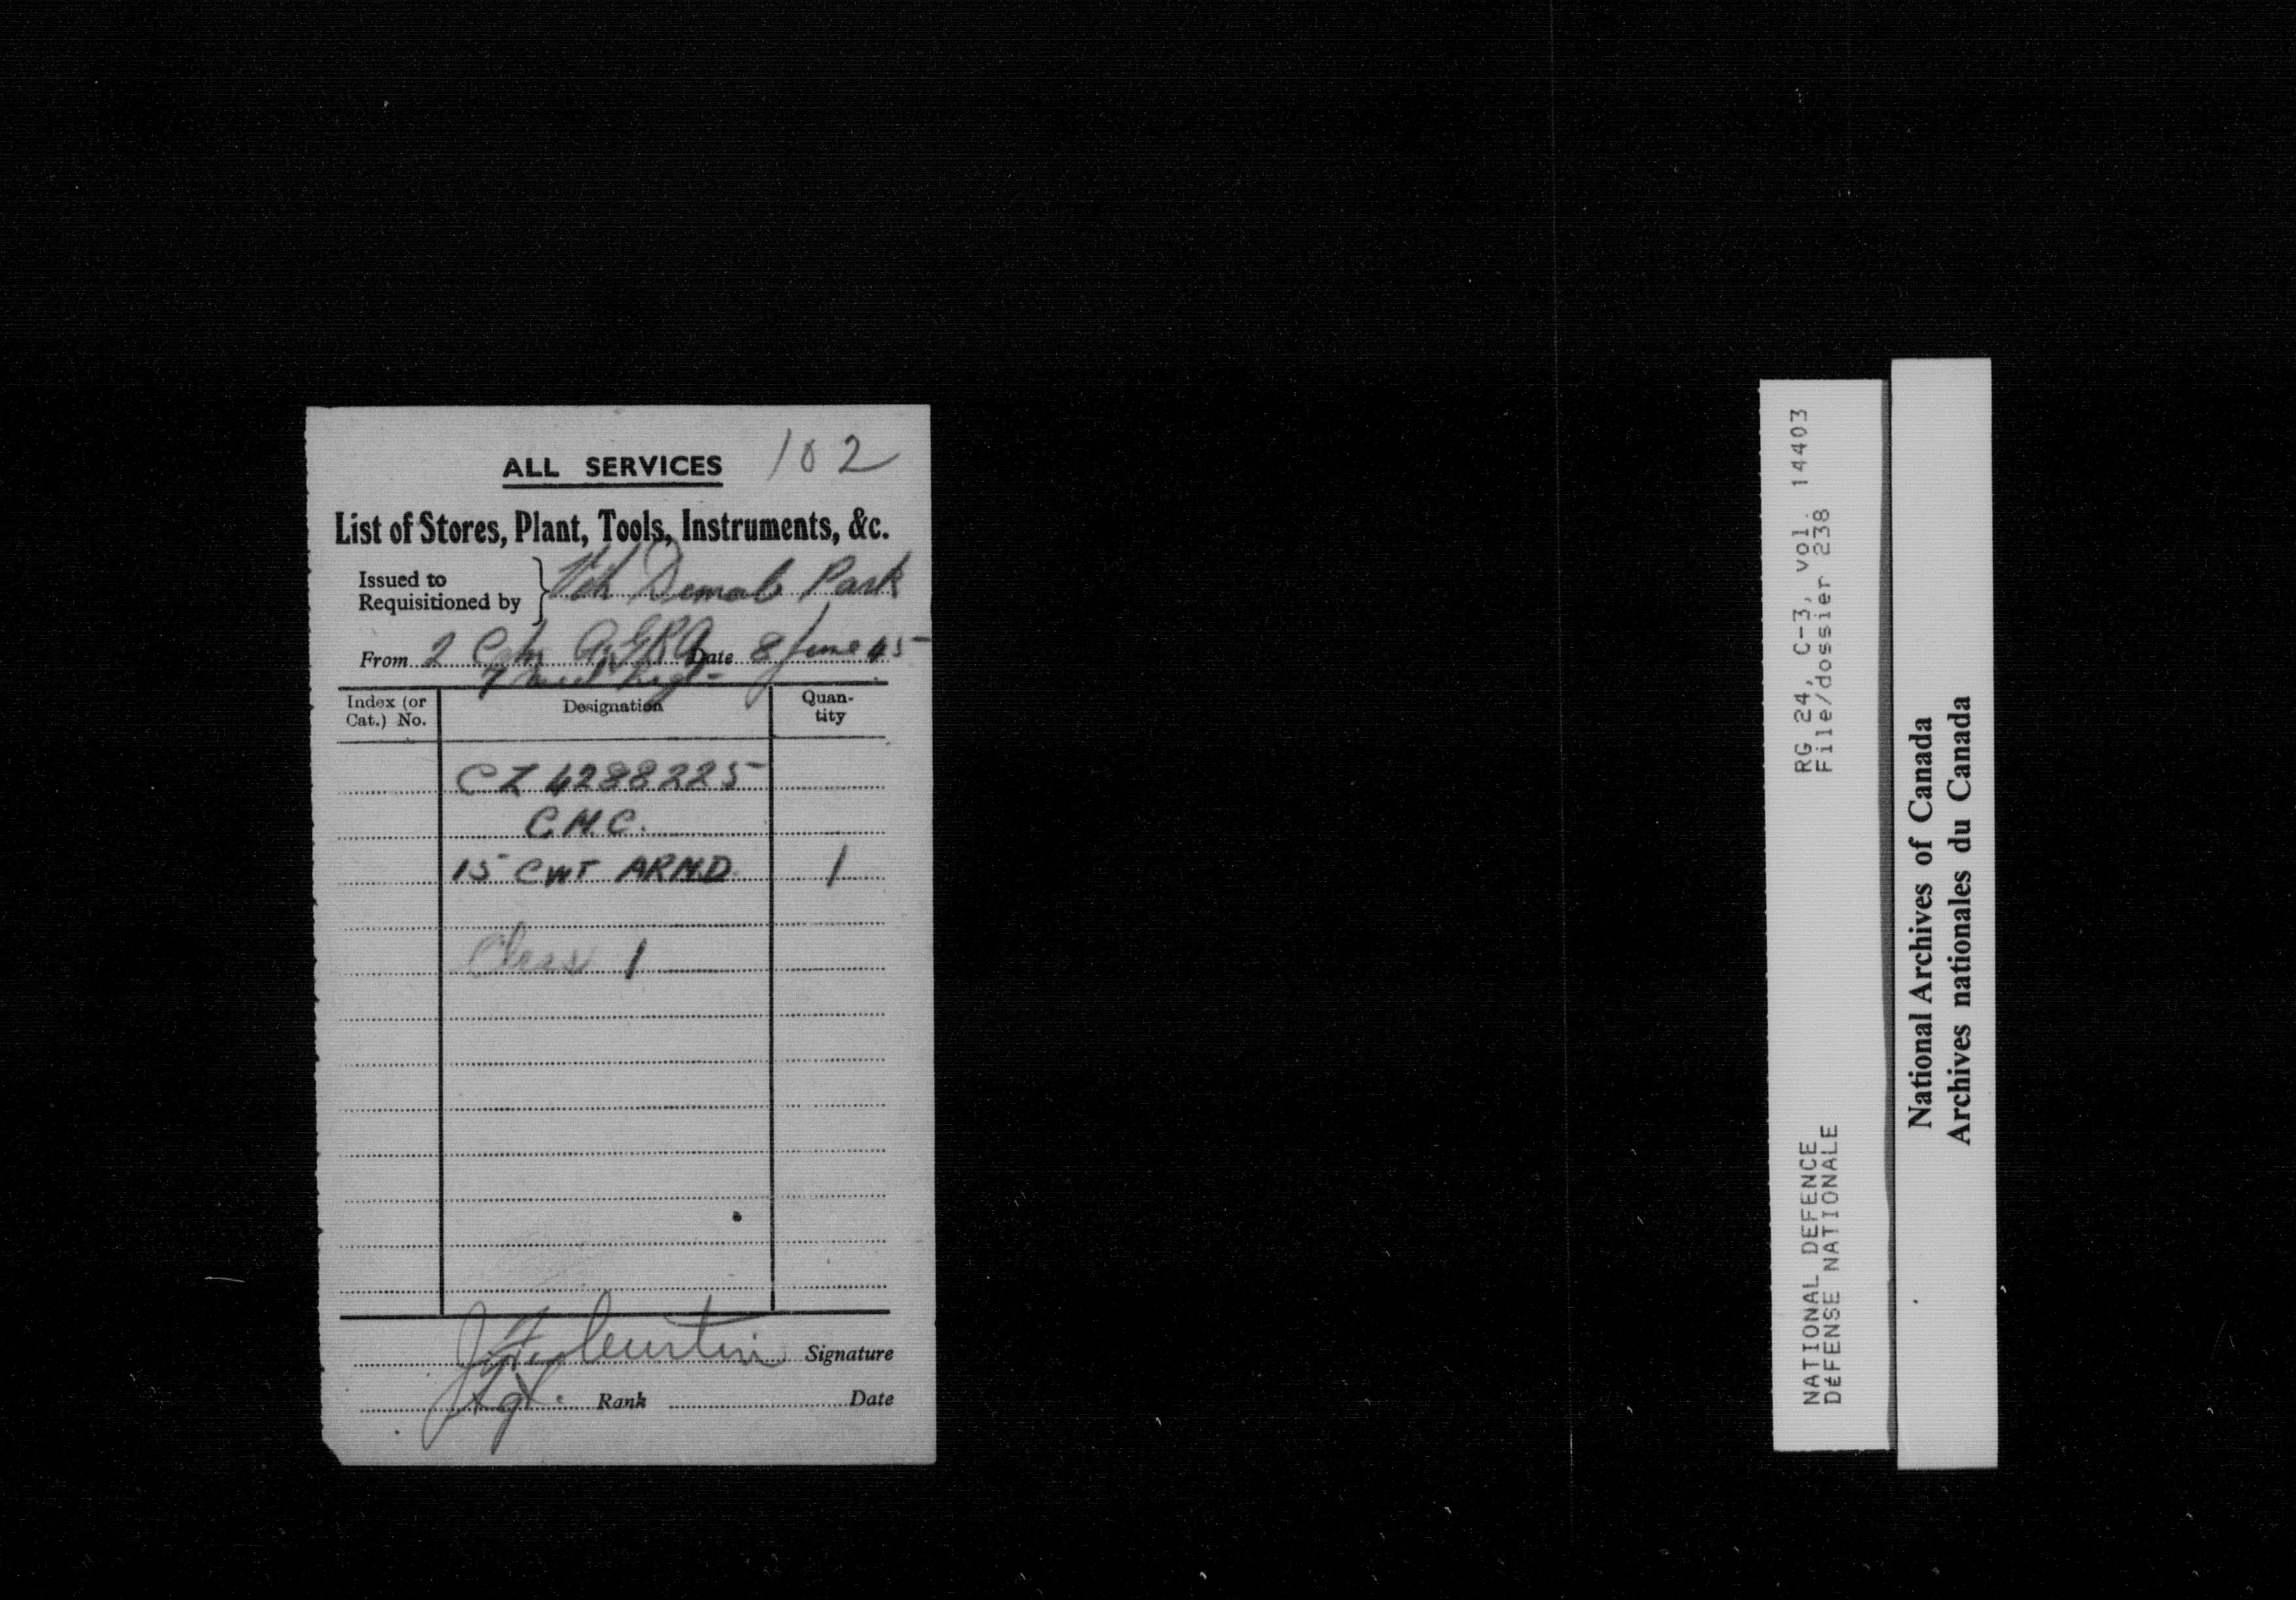 102
ALL SERVICES
List of Stores, Plant, Tools, Instruments, &c.
Issued to
Requisitioned by
Veh Demob Park
From 2 Cdn A.G.R.A. Date 8 June 45
7 Med Regt-
Index (or Cat.) No.
Designation
Quan-
tity
CZ 4288225
C.M.C.
15 CWT ARMD. 1
Class 1
Signature
Sgt. Rank Date
RG 24, C-3, vol. 14403
File/dossier 238
NATIONAL DEFENCE
DÉFENSE NATIONALE
National Archives of Canada
Archives nationales du Canada